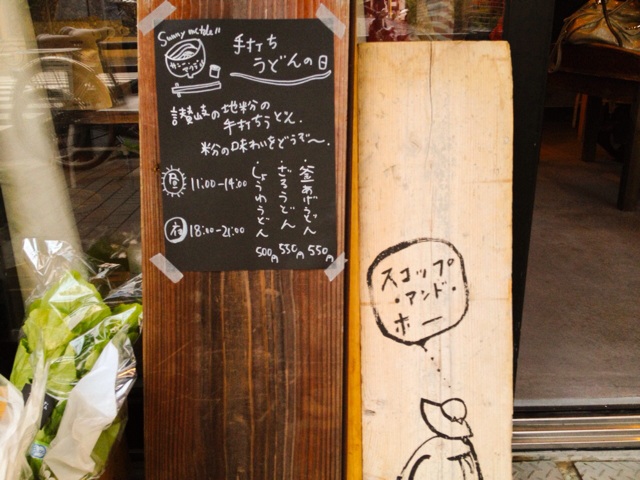 Sunny matsuli
サニー
手打ち
うどんの日
讃岐の地粉の
手打ちうどん.
粉の味わいをどうぞ〜.
昼 11:00-14:00
夜 18:00-21:00
・釜あげうどん 550円
・ざるうどん 550円
・しょうゆうどん 500円
スコップ
・アンド・
ホー